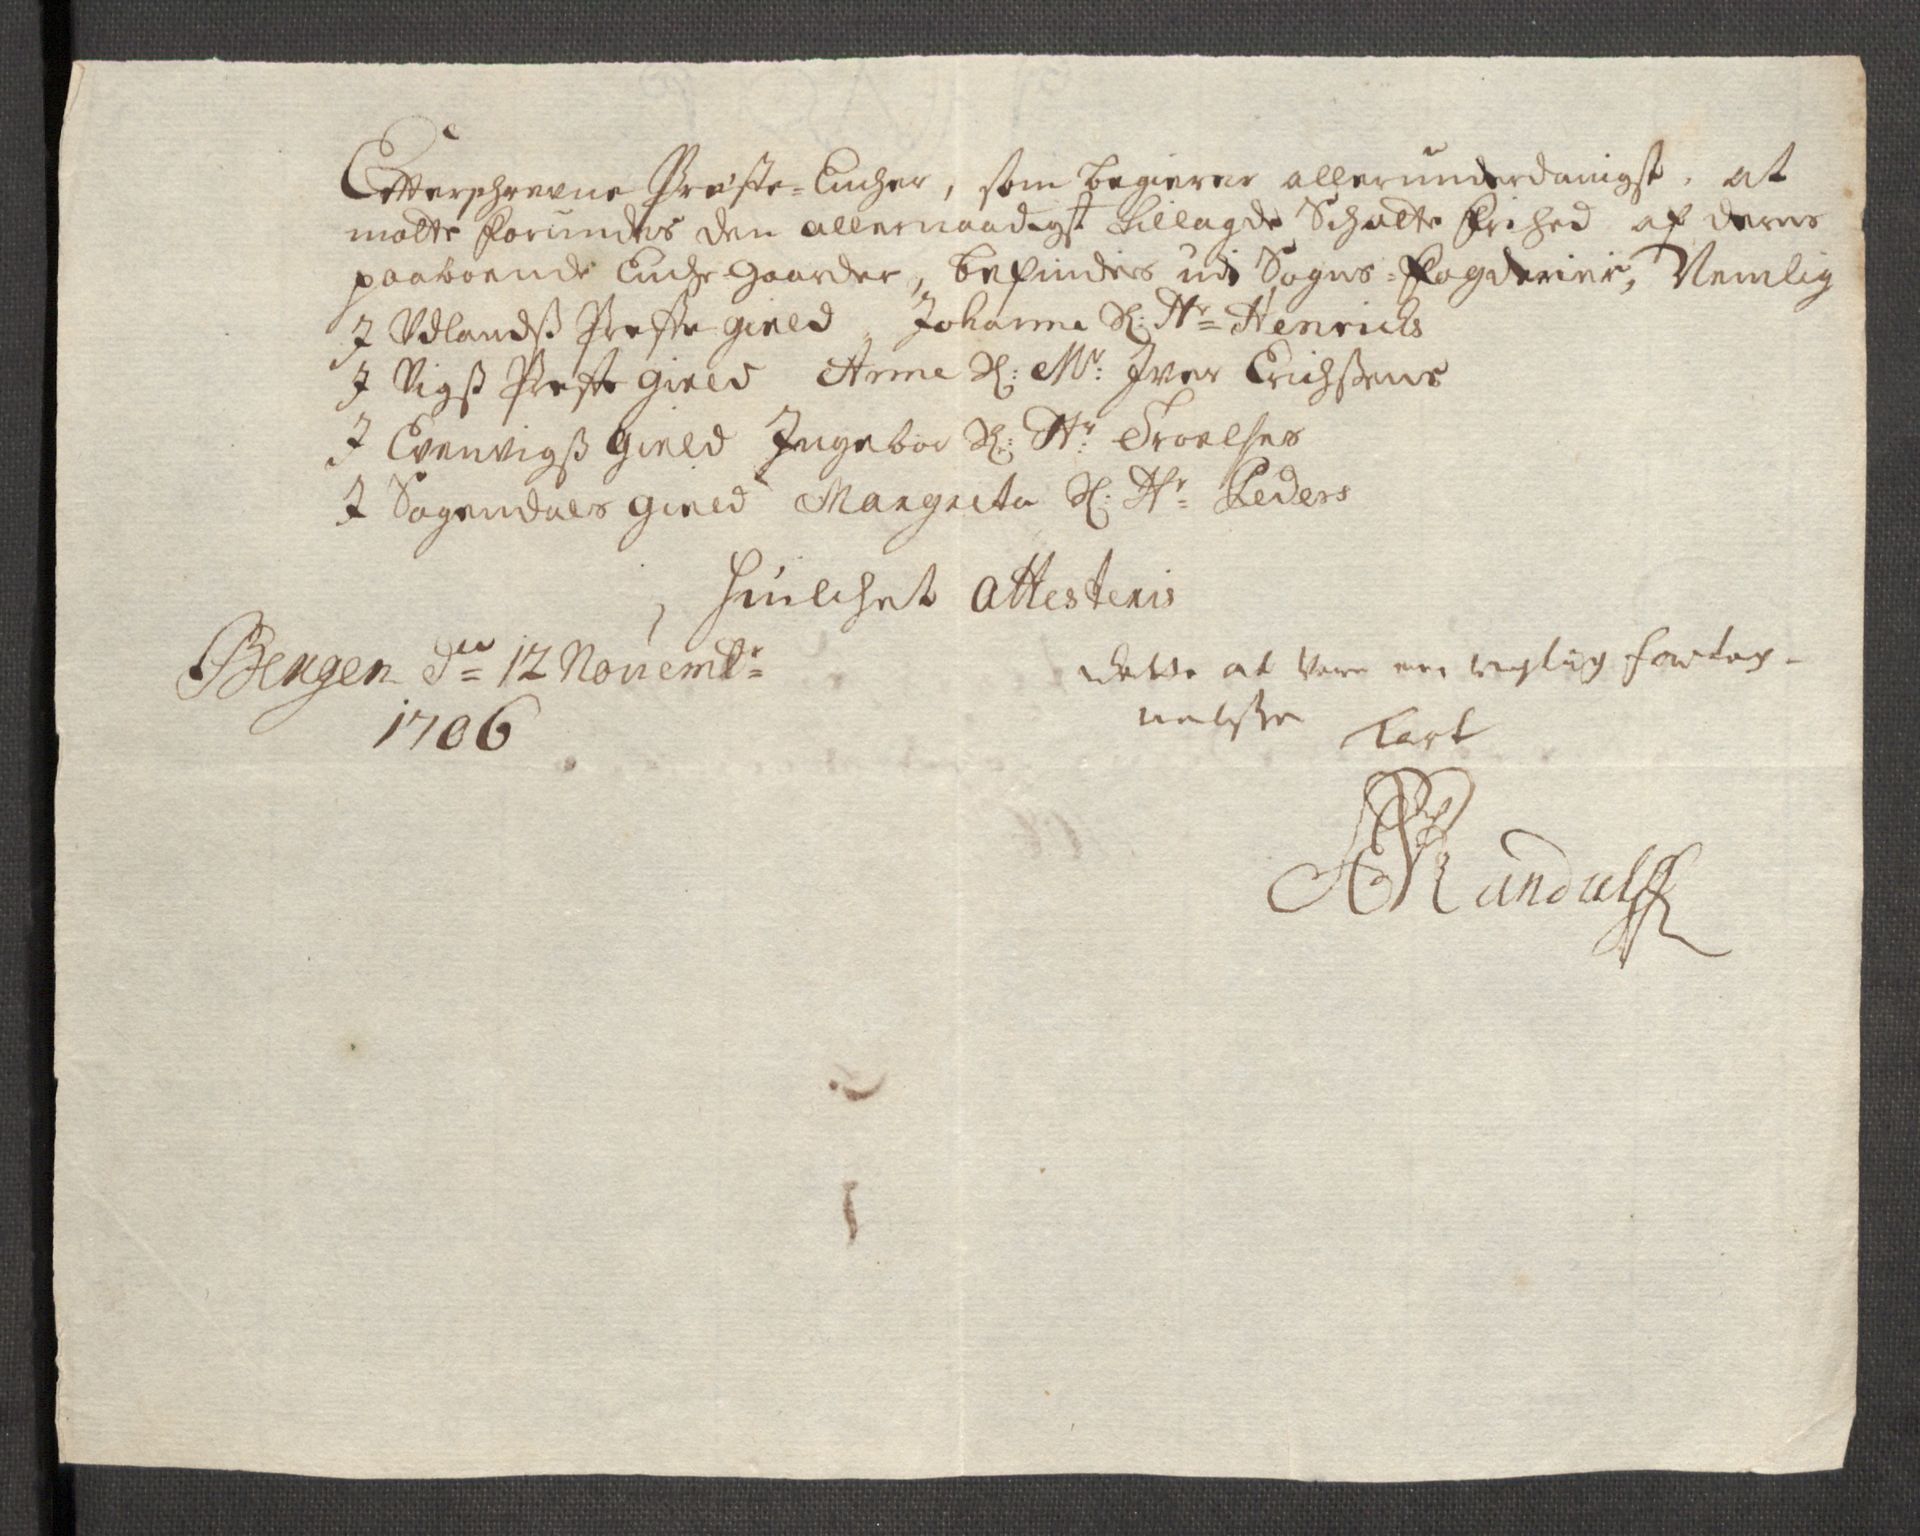 Effterschrevne Præste-Encher, som begierer allerunderdanigst, at
motte forundes den allernaadigst tillagde Schatte Frihed af deres
paaboende Enche-Gaarder, befindes udi Sogns-Fogderier, Nemlig
J Udlandß Preste gield, Johanna Sl: Hr Henrichs
J Vigß Preste gield Anne Sl: Mr: Jver Erichßens
J Evenvigß gield Jngebor Sl: Hr: Troelses
J Sogendals gield Margreta Sl: Hr Peders
Huilchet Attesteris
Bergen den 12 Novembr
1706
dette at Være een rigtig fortæg-
nelsße
NRandulff